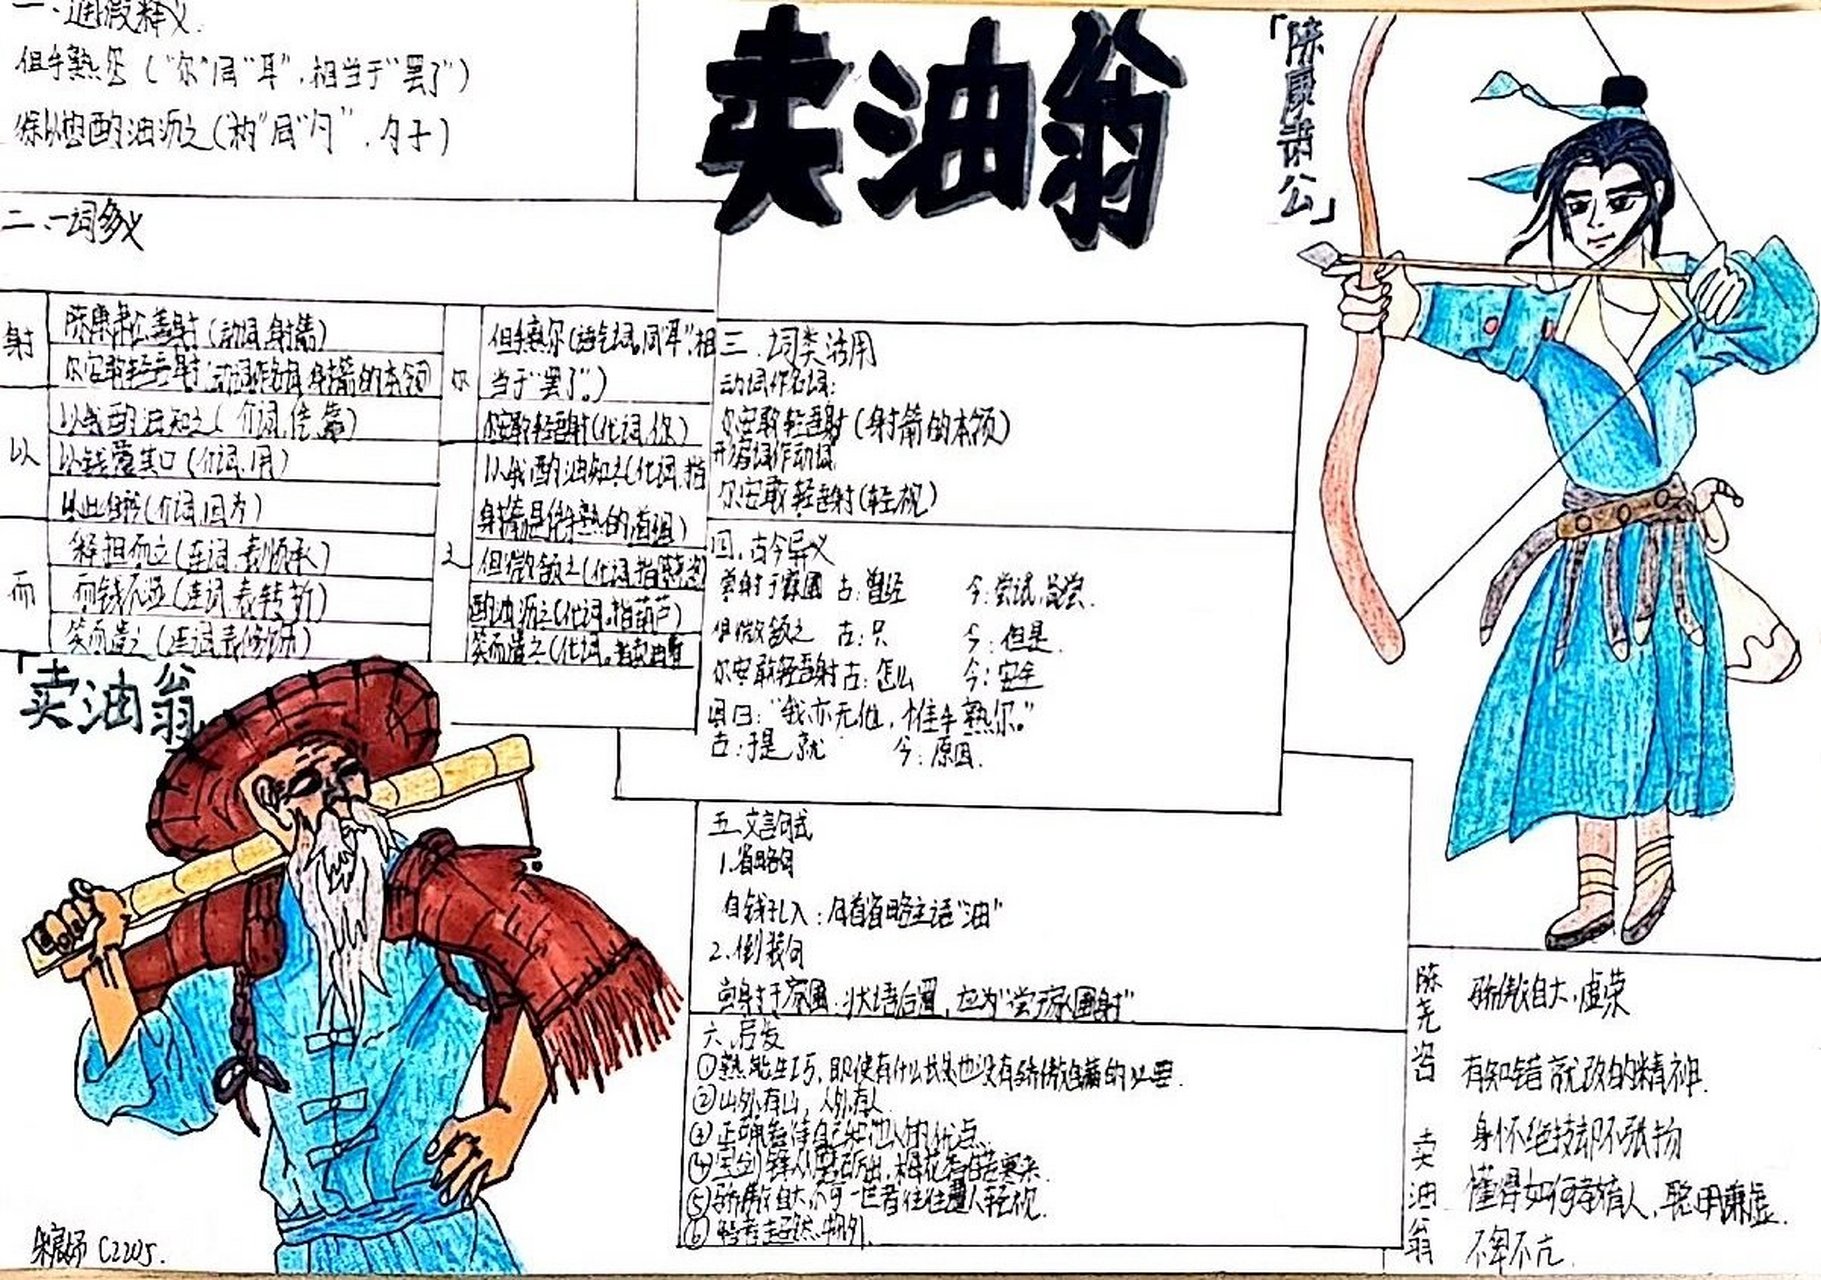 一、通假释义
但手熟尔（“尔”同“耳”，相当于“罢了”）
徐以杓酌油沥之（“杓”同“勺”，勺子）
卖油翁
「陈康肃公」
二、一词多义
射
陈康肃公善射（动词，射箭）
尔安敢轻吾射（动词作名词，射箭的本领）
以
以我酌油知之（介词，凭、靠）
以钱覆其口（介词，用）
以此自矜（介词，因为）
而
释担而立（连词，表顺承）
而钱不湿（连词，表转折）
笑而遣之（连词，表修饰）
尔
但手熟尔（语气词。同“耳”，相
当于“罢了”。）
尔安敢轻吾射（代词，你）
之
以我酌油知之（代词，指
射箭是凭手熟的道理）
但微颔之（代词，指
酌油沥之（代词，指葫芦）
笑而遣之（代词。指卖油翁
三、词类活用
动词作名词：
尔安敢轻吾射（射箭的本领）
形容词作动词
尔安敢轻吾射（轻视）
四、古今异义
尝射于家圃 古：曾经 今：尝试，品尝.
但微颔之 古：只 今：但是.
尔安敢轻吾射 古：怎么 今：安全
翁曰：“我亦无他，惟手熟尔。”
古：于是，就 今：原因.
五、文言句式
1.省略句
自钱孔入：句首省略主语“油”
2.倒装句
尝射于家圃：状语后置，应为“尝于家圃射”
六、启发
①熟能生巧，即使有什么长处也没有骄傲自满的必要.
②山外有山，人外有人
③正确看待自己和他人的优点.
④宝剑锋从磨砺出，梅花香自苦寒来.
⑤骄傲自大，不可一世者往往遭人轻视.
⑥
「卖油翁
陈尧咨
骄傲自大，虚荣
有知错就改的精神.
卖油翁
身怀绝技却不张扬
懂得如何待人，聪明谦虚.
不卑不亢.
C2205.